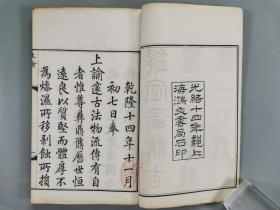 光緒十四年上
海鴻文書局石印
乾隆十四年十一月
初七日奉
上諭邃古法物流傳有自
者惟尊彝鼎鼐歷世恒
遠良以質堅而體厚不
為燥濕所移剝蝕所損